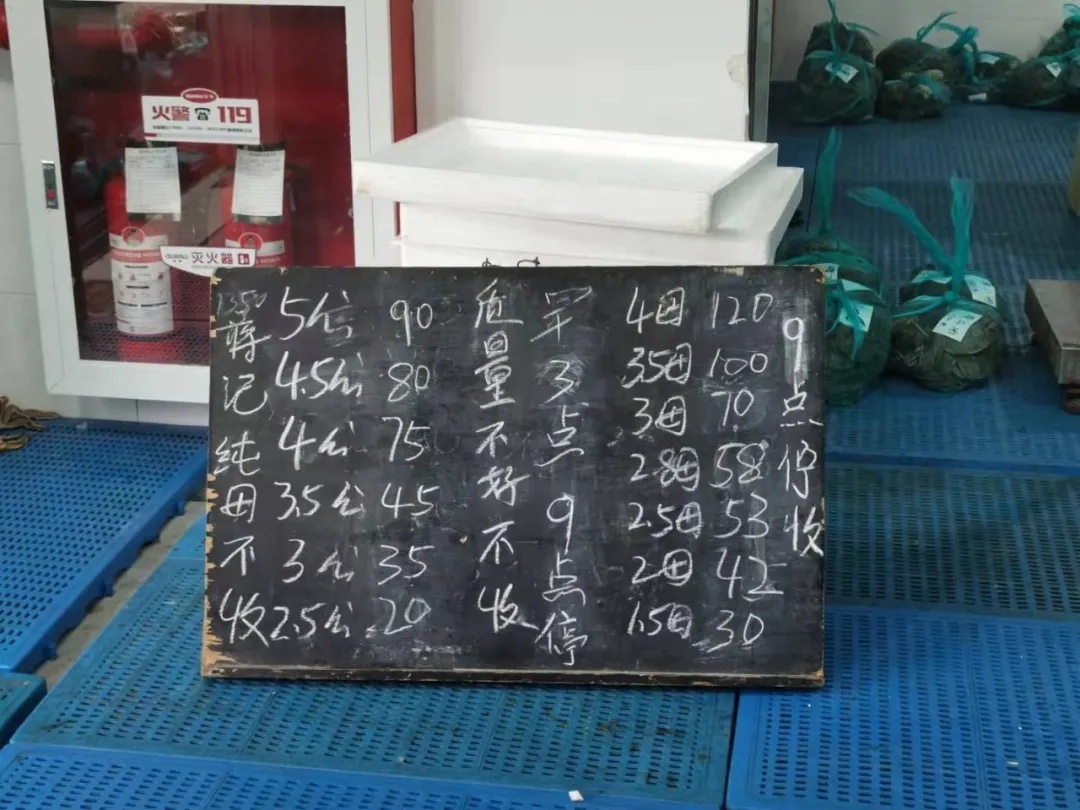 火警 119
灭火器
蒋记纯母不收
5公 90
4.5公 80
4公 75
3.5公 45
3公 35
2.5公 20
质量不好不收
早3点9点停
4母 120
3.5母 100
3母 70
2.8母 58
2.5母 53
2母 42
1.5母 30
9点停收